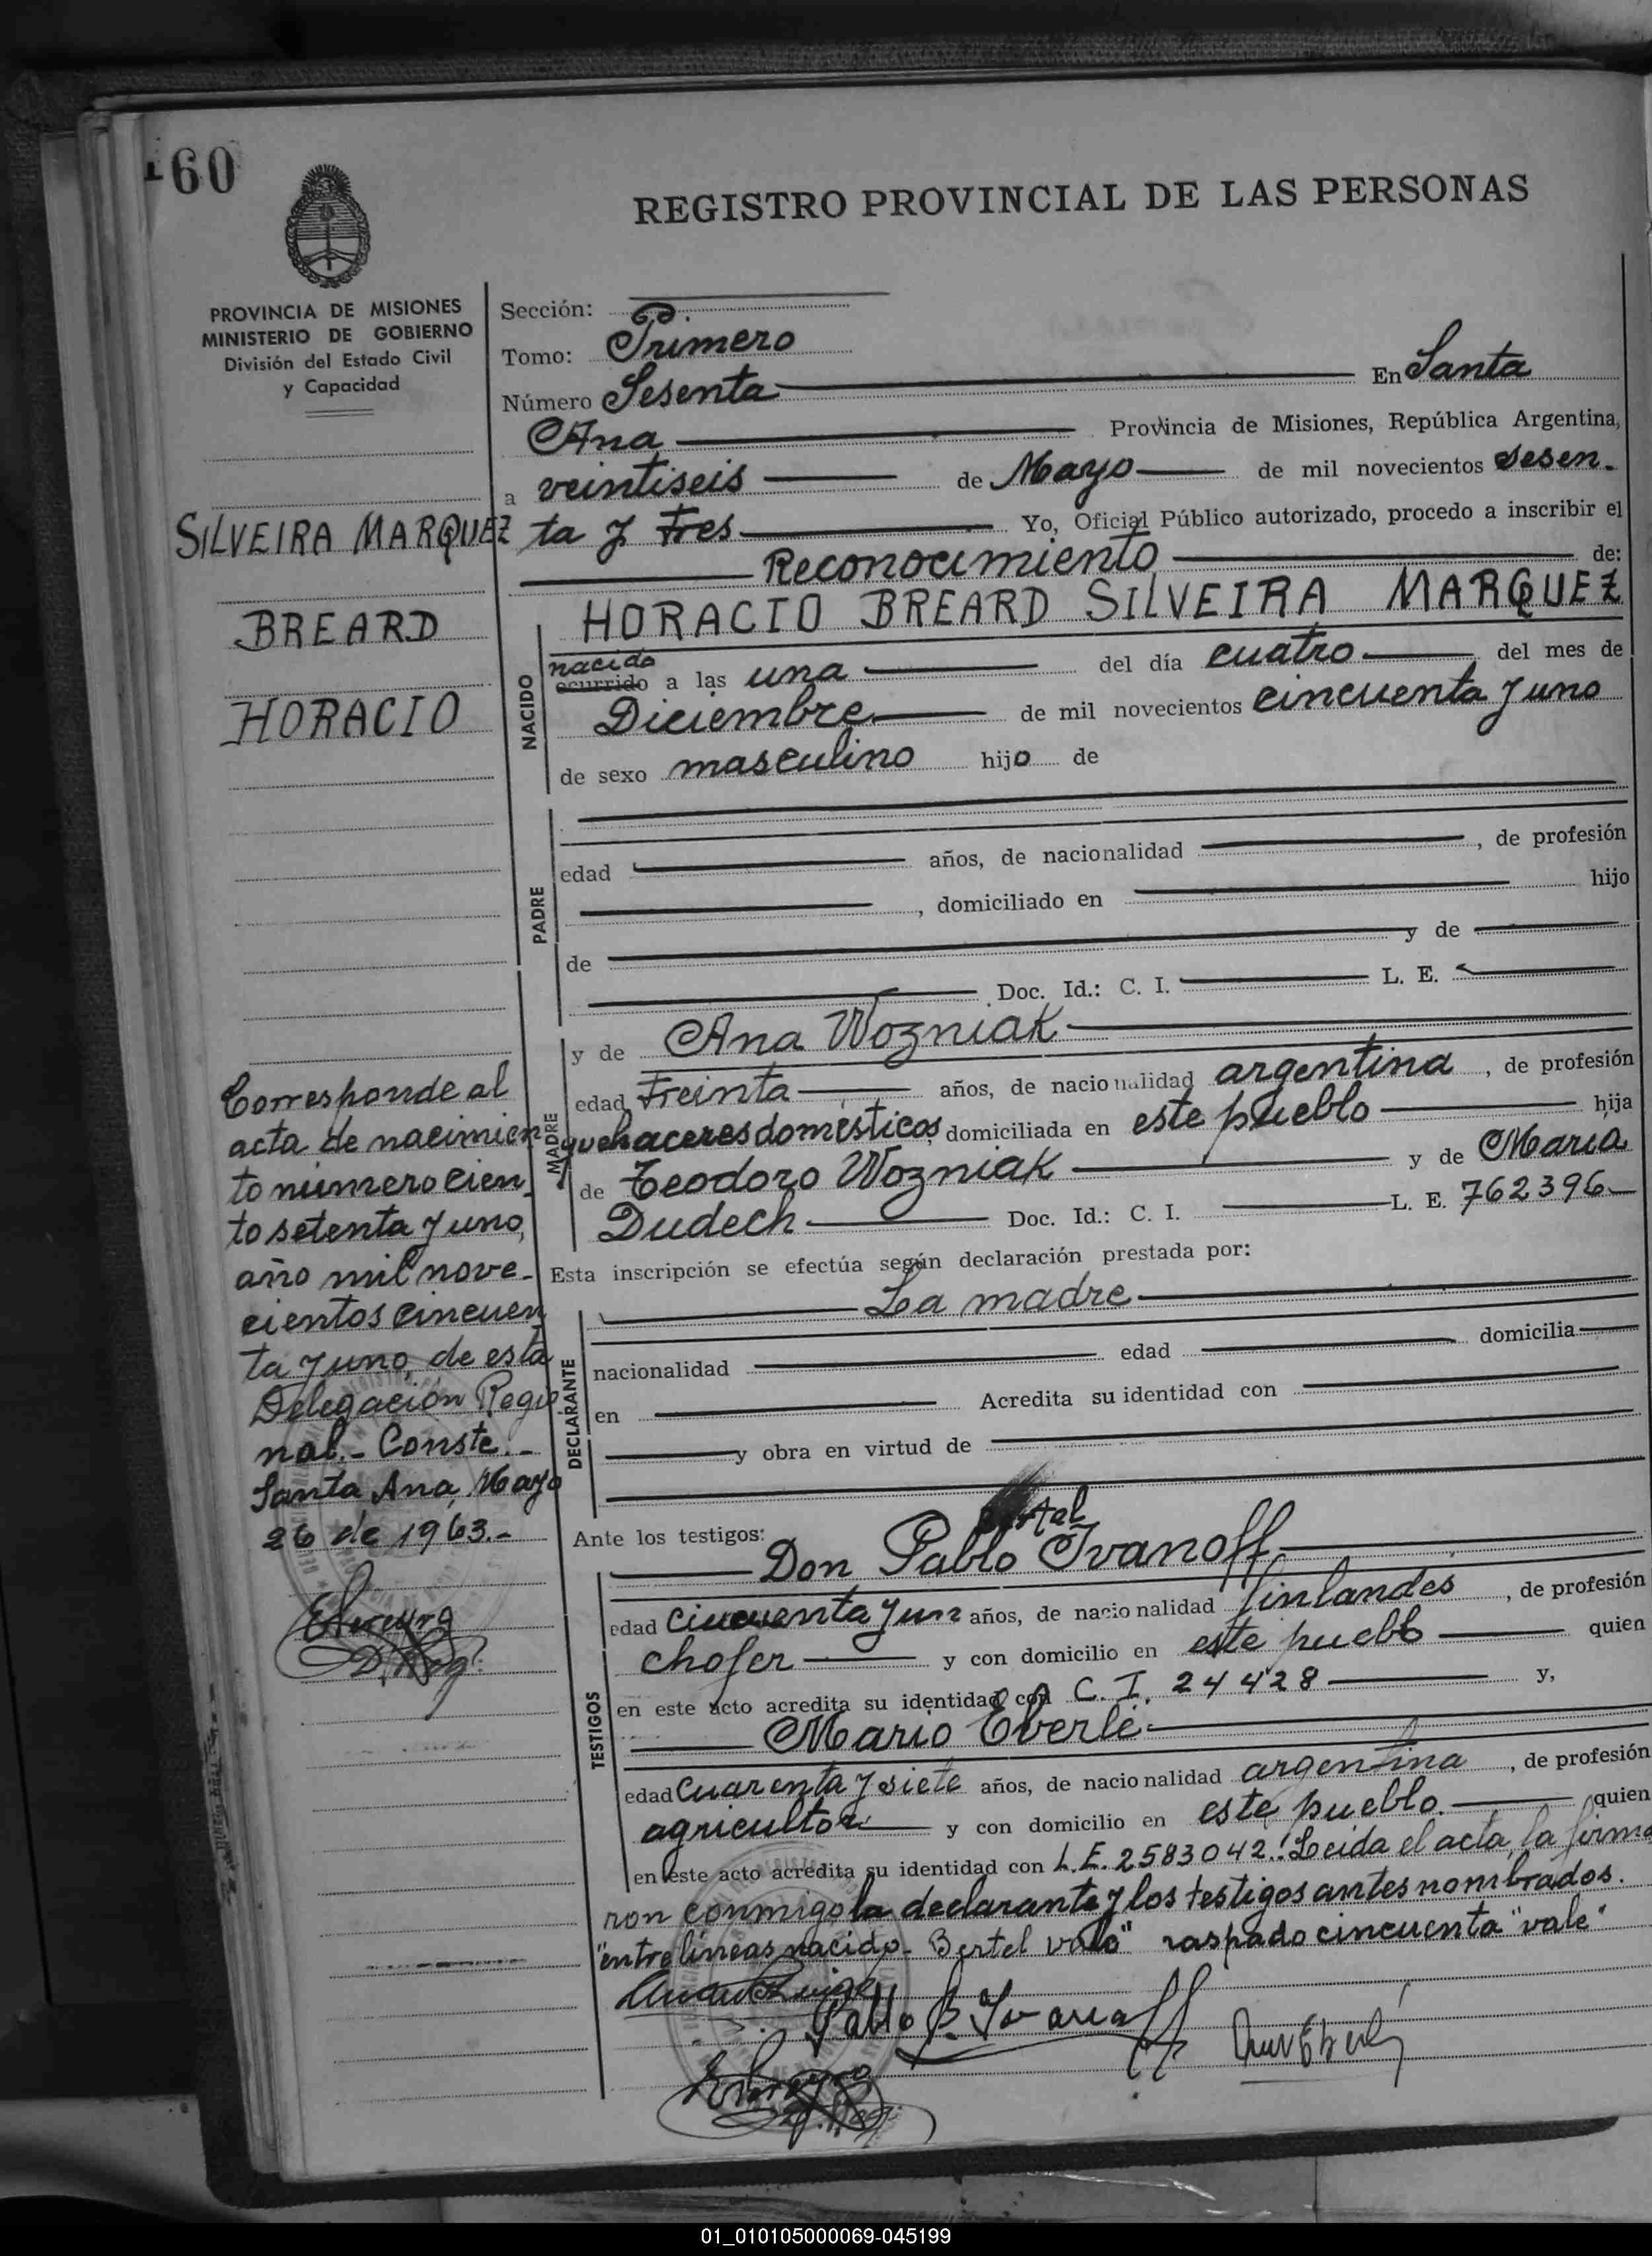 160
REGISTRO PROVINCIAL DE LAS PERSONAS
PROVINCIA DE MISIONES
MINISTERIO DE GOBIERNO
División del Estado Civil
y Capacidad
SILVEIRA MARQUEZ
BREARD
HORACIO
Corresponde al
acta de nacimien
to número cien
to setenta y uno,
año mil nove-
cientos cincuen
ta y uno, de esta
Delegación Regio
nal.- Conste.-
Santa Ana, Mayo
26 de 1963.-
Sección:
Tomo: Primero
Número Sesenta En Santa
Ana Provincia de Misiones, República Argentina,
a veintiseis de Mayo de mil novecientos sesen-
ta y tres Yo, Oficial Público autorizado, procedo a inscribir el
Reconocimiento de:
HORACIO BREARD SILVEIRA MARQUEZ
NACIDO
nacido
ocurrido a las una del día cuatro del mes de
Diciembre de mil novecientos cincuenta y uno
de sexo masculino hijo de
PADRE
edad años, de nacionalidad , de profesión
, domiciliado en hijo
de y de
Doc. Id.: C. I. L. E.
MADRE
y de Ana Wozniak
edad Treinta años, de nacionalidad argentina , de profesión
quehaceres domésticos domiciliada en este pueblo hija
de Teodoro Wozniak y de María
Dudech Doc. Id.: C. I. L. E. 762396
Esta inscripción se efectúa según declaración prestada por:
DECLARANTE
La madre
nacionalidad edad domicilia
en Acredita su identidad con
y obra en virtud de
Ante los testigos:
TESTIGOS
Don Pablo Ivanoff
edad cincuenta y un años, de nacionalidad finlandés , de profesión
chofer y con domicilio en este pueblo quien
en este acto acredita su identidad con C. I. 24428 y,
Mario Eberlé
edad cuarenta y siete años, de nacionalidad argentina , de profesión
agricultor y con domicilio en este pueblo. quien
en este acto acredita su identidad con L.E. 2583042. Leida el acta, la firma
ron conmigo la declarante y los testigos antes nombrados.
"entre líneas nacido - Bertel vale" raspado cincuenta "vale"
Pablo B. Ivanoff
01_010105000069-045199